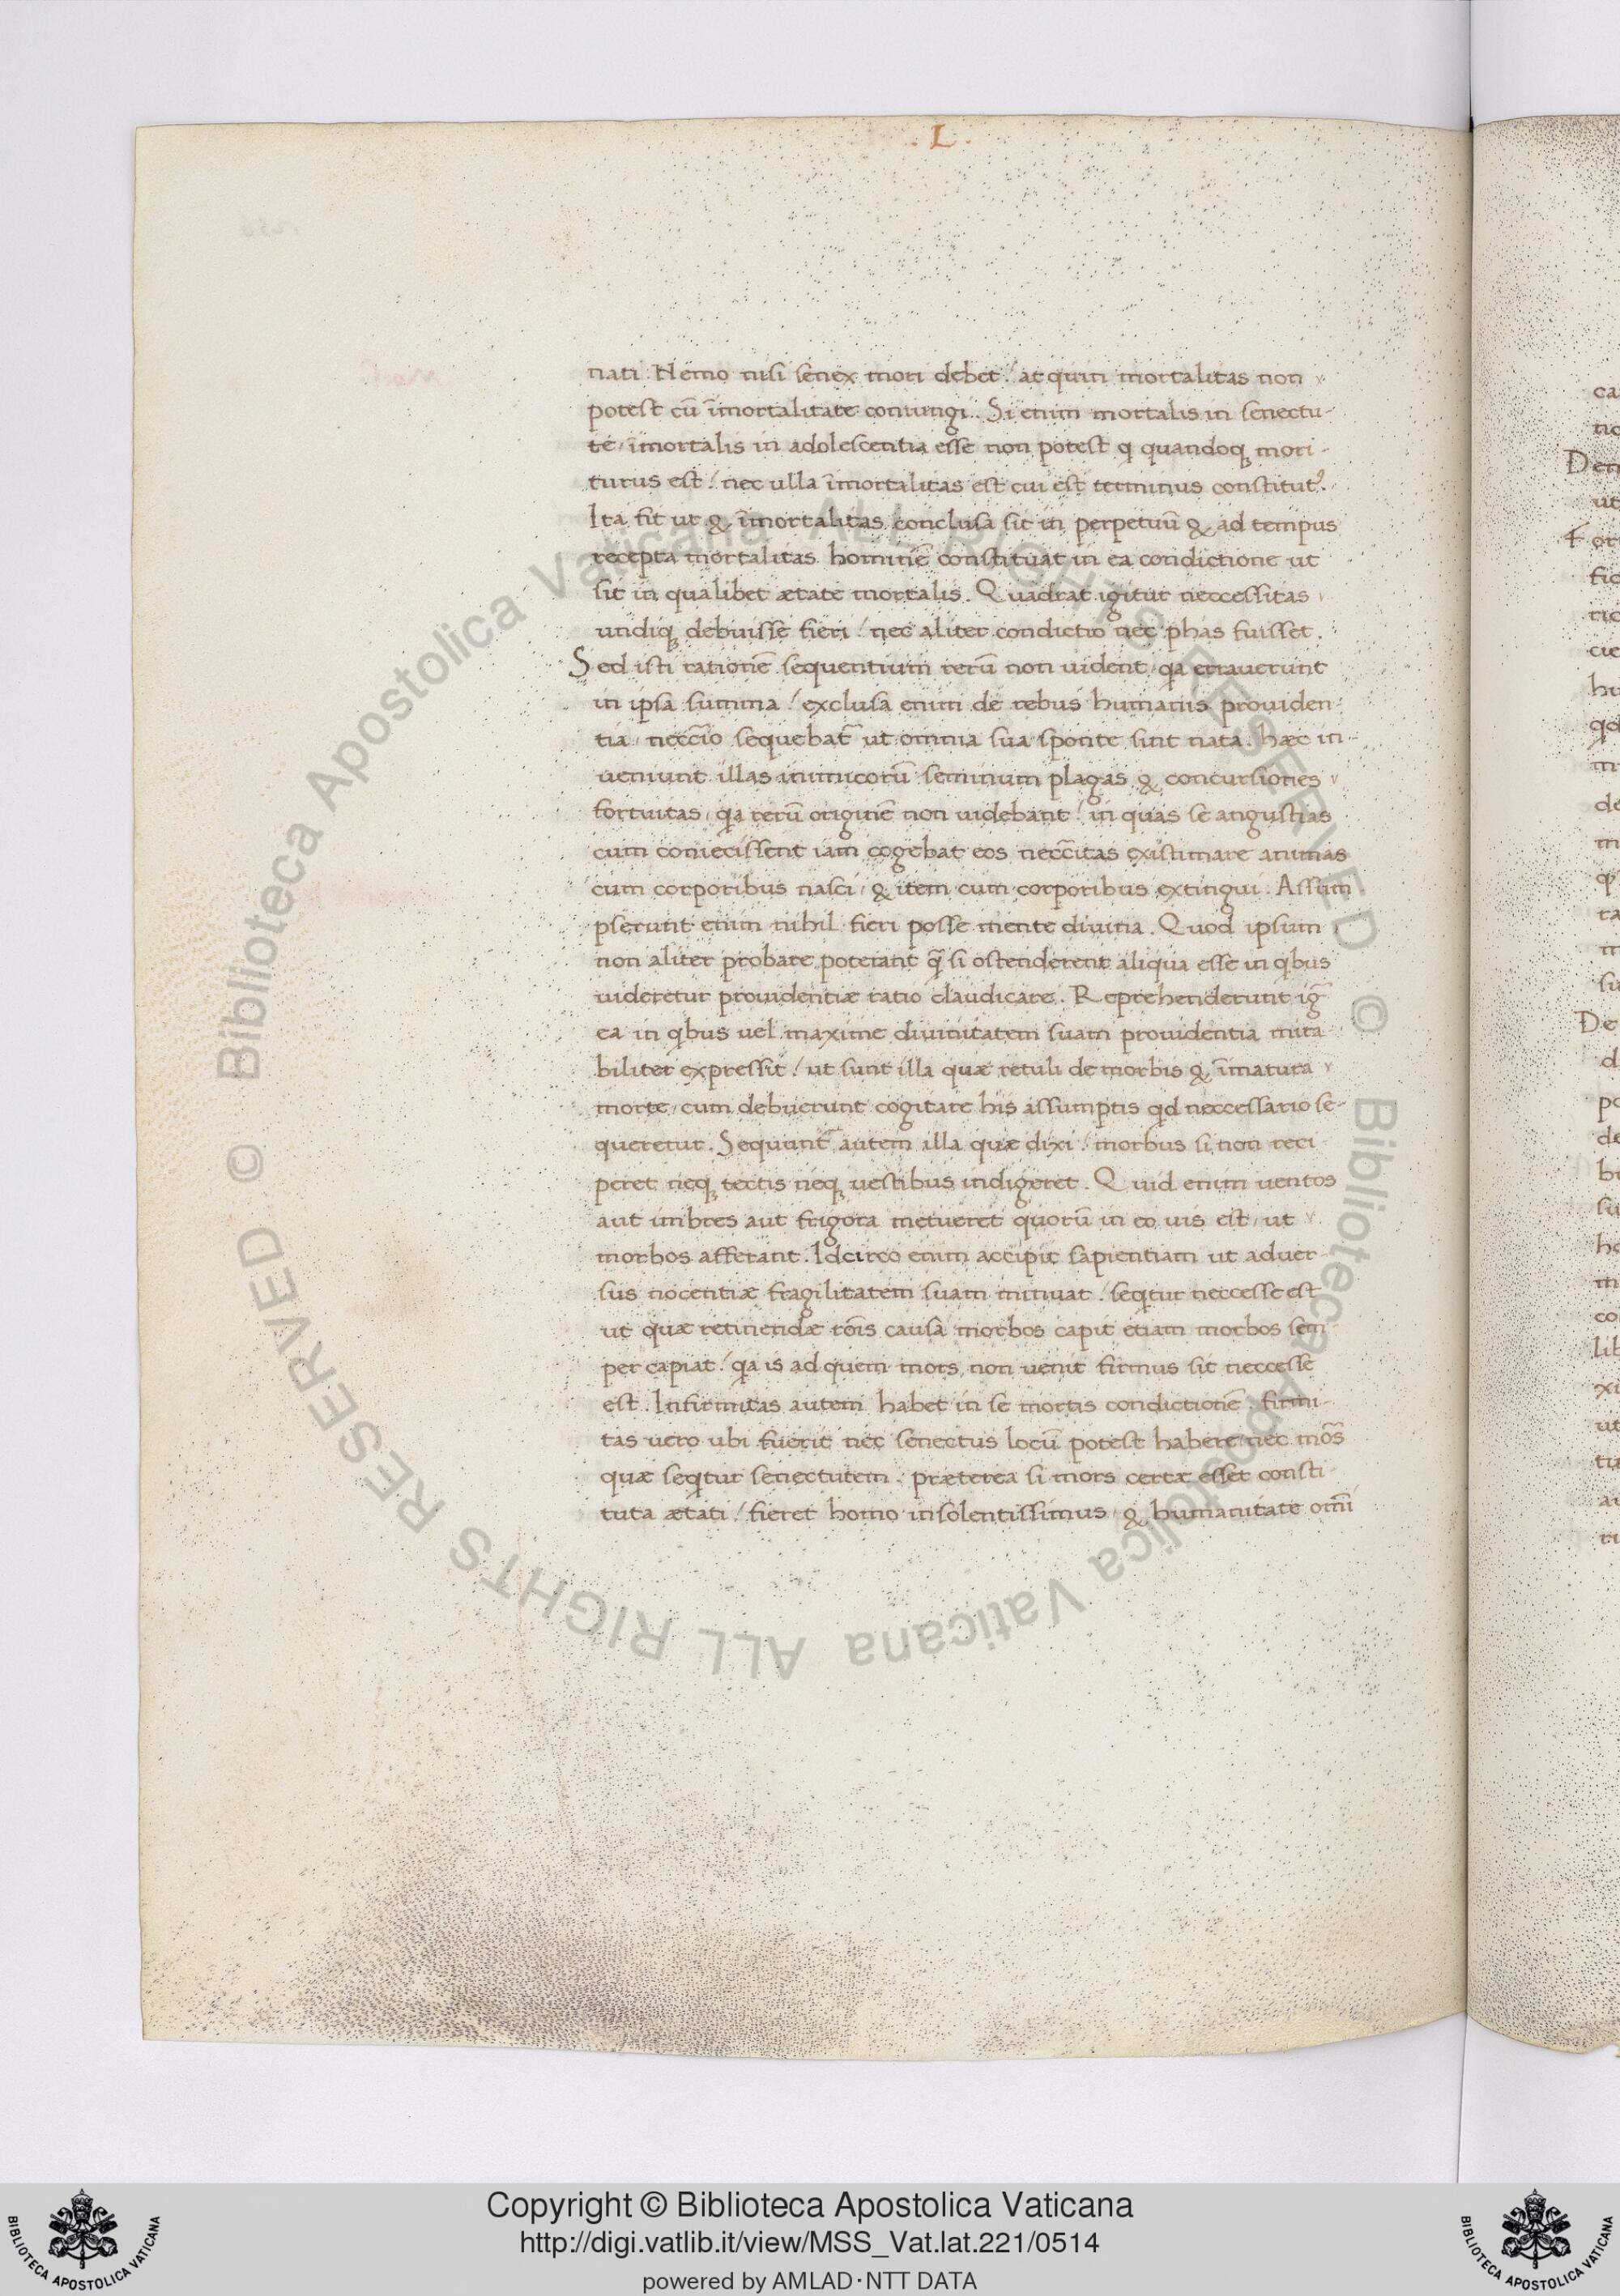 . L .
nati . Nemo nisi senex mori debet / at quin mortalitas non
potest cū īmortalitate coniungi . Si enim mortalis in senectu-
te / īmortalis in adolescentia esse non potest q quandoq; mori-
turus est / nec ulla īmortalitas est cui est terminus constitut⁹.
Ita fit ut & īmortalitas conclusa sit in perpetuū & ad tempus
recepta mortalitas hominē constituat in ea condictione ut
sit in qualibet ætate mortalis . Quadrat igitur neccessitas
undiq; debuisse fieri / nec aliter condictio nec phas fuisset .
Sed isti rationē sequentium rerū non uident / qa errauerunt
in ipsa summa / exclusa enim de rebus humanis prouiden-
tia / neccīo sequebat̄ ut omnia sua sponte sint nata . hæc in-
ueniunt illas inimicorū seminum plagas & concursiones
fortuitas / qa rerū originē non uidebant / in quas se angustias
cum coniecissent iam cogebat eos neccītas existimare animas
cum corporibus nasci / & item cum corporibus extingui . Assum
pserunt enim nihil fieri posse mente diuina . Quod ipsum
non aliter probare poterant q̄ si ostenderent aliqua esse in qbus
uideretur prouidentiæ ratio claudicare . Reprehenderunt ig̃
ea in qbus uel maxime diuinitatem suam prouidentia mira
biliter expressit / ut sunt illa quæ retuli de morbis & īmatura
morte / cum debuerunt cogitare his assumptis qd neccessario se-
queretur . Sequunt̄ autem illa quæ dixi / morbus si non reci
peret neq; tectis neq; uestibus indigeret . Quid enim uentos
aut imbres aut frigora metueret quorū in eo uis est / ut
morbos afferant . Idcirco enim accipit sapientiam ut aduer
sus nocentiæ fragilitatem suam minuat . seqtur neccesse est
ut quæ retinendæ rōis causa morbos capit etiam morbos sem
per capiat / qa is ad quem mors non uenit firmus sit neccesse
est . Infirmitas autem habet in se mortis condictionē . firmi-
tas uero ubi fuerit nec senectus locū potest habere nec mōs
quæ seqtur senectutem . præterea si mors certæ esset consti-
tuta ætati / fieret homo insolentissimus / & humanitate omī
© Biblioteca Apostolica Vaticana ALL RIGHTS RESERVED © Biblioteca Apostolica Vaticana ALL RIGHTS RESERVED
ca
no
Den
ut
For
fic
cie
hu
qd
de
De
po
de
ho
co
lib
xi
ut
BIBLIOTECA APOSTOLICA VATICANA
Copyright © Biblioteca Apostolica Vaticana
http://digi.vatlib.it/view/MSS_Vat.lat.221/0514
powered by AMLAD·NTT DATA
BIBLIOTECA APOSTOLICA VATICANA